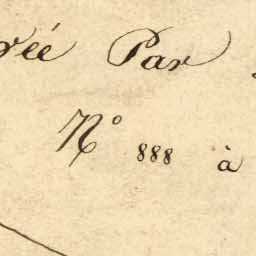 rée Par
N° 888 à